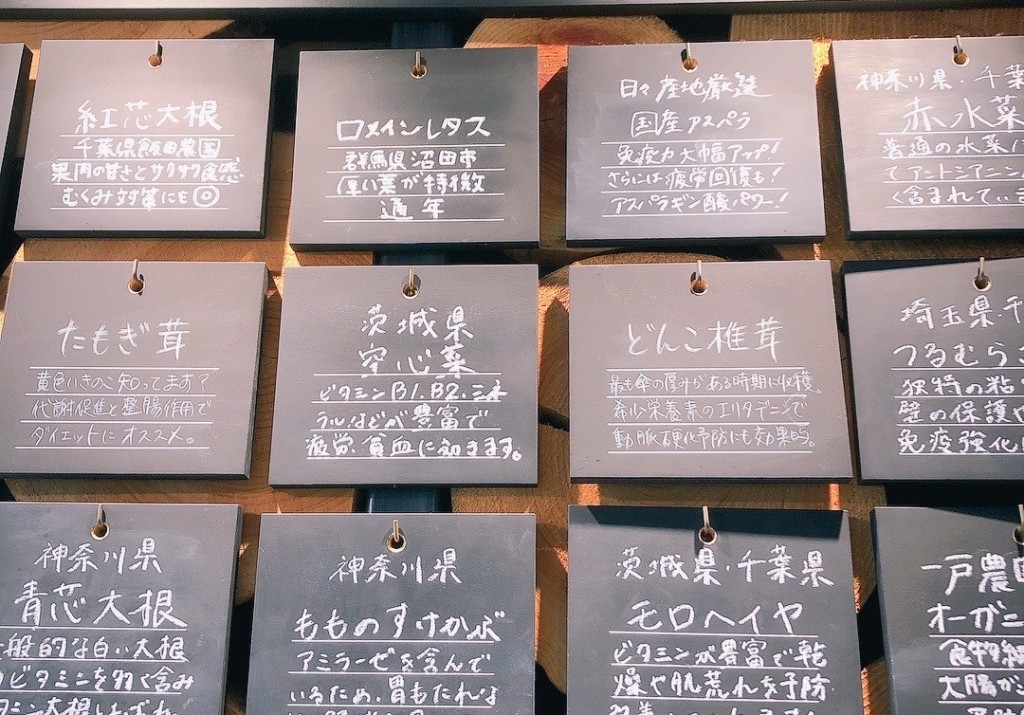 紅芯大根
千葉県飯田農園
果肉の甘さとサクサク食感
むくみ対策にも◎
ロメインレタス
群馬県沼田市
厚い葉が特徴
通年
日々産地厳選
国産アスパラ
免疫力大幅アップ!
さらには疲労回復も!
アスパラギン酸パワー!
神奈川県・千葉
赤水菜
普通の水菜に
てアントシアニン
く含まれていま
たもぎ茸
黄色いきのこ知ってます?
代謝促進と整腸作用で
ダイエットにオススメ。
茨城県
空心菜
ビタミンB1.B2.ミネ
ラルなどが豊富で
疲労、貧血に効きます。
どんこ椎茸
最も傘の厚みがある時期に収穫。
希少栄養素のエリタデニンで
動脈硬化予防にも効果的。
埼玉県・千
つるむらさ
独特の粘
壁の保護
免疫強化
神奈川県
青芯大根
般的な白い大根
ビタミンを多く含み
神奈川県
もものすけかぶ
アミラーゼを含んで
いるため、胃もたれよ
茨城県・千葉県
モロヘイヤ
ビタミンが豊富で乾
燥や肌荒れを予防
一戸農
オーガニ
食物繊
大腸が